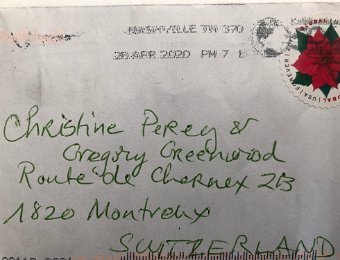 NASHVILLE TN 370
28 APR 2020 PM 7 L
Christine Perey &
Gregory Greenwood
Route de Chernex 2B
1820 Montreux
SWITZERLAND